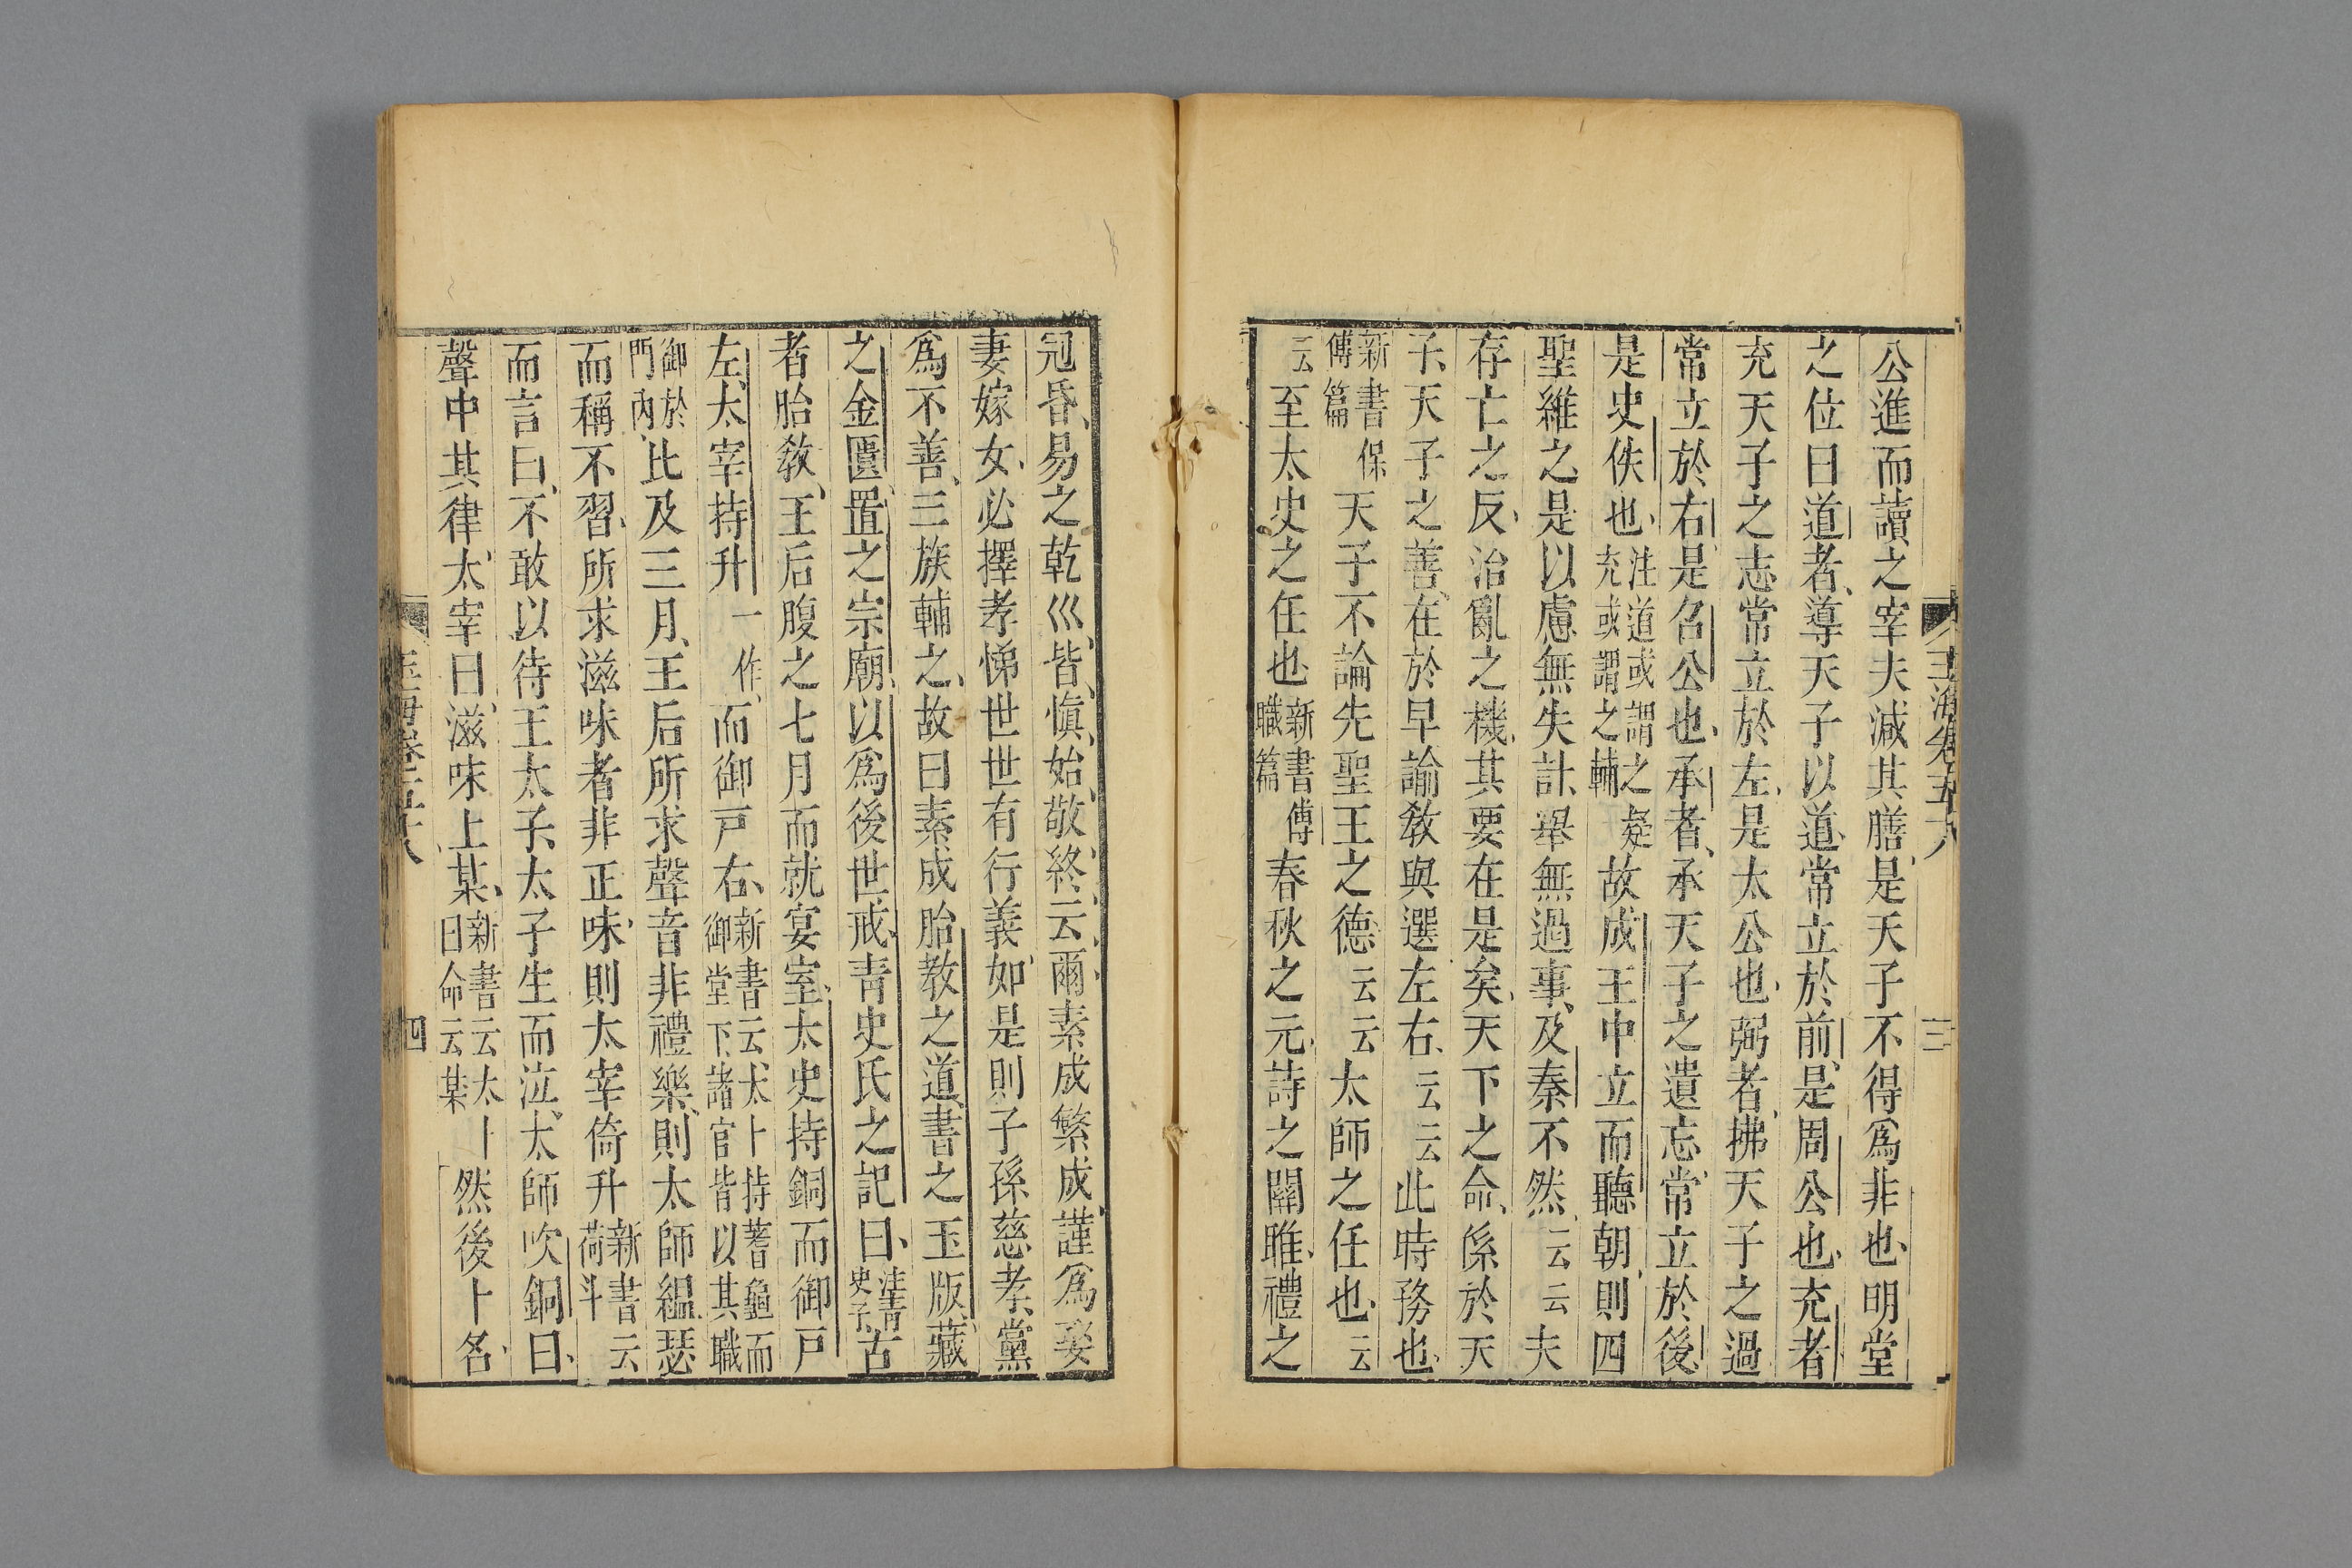 玉海卷五十八
三
公進而讀之宰夫減其膳是天子不得為非也明堂
之位曰道者導天子以道常立於前是周公也充者
充天子之志常立於左是太公也弼者拂天子之過
常立於右是召公也承者承天子之遺忘常立於後
是史佚也注道或謂之疑充或謂之輔故成王中立而聽朝則四
聖維之是以慮無失計舉無過事及秦不然云云夫
存亡之反治亂之機其要在是矣天下之命係於天
子天子之善在於早諭教與選左右云云此時務也
新書保傅篇天子不論先聖王之德云云太師之任也云
云至太史之任也新書傅職篇春秋之元詩之關雎禮之
冠昏易之乾巛皆慎始敬終云爾素成繁成謹為娶
妻嫁女必擇孝悌世世有行義如是則子孫慈孝黨
為不善三族輔之故曰素成胎教之道書之玉版藏
之金匱置之宗廟以為後世戒青史氏之記曰注青史子古
者胎教王后腹之七月而就宴室太史持銅而御戶
左太宰持升一作而御戸右新書云太卜持蓍龜而御堂下諸官皆以其職
御於門內比及三月王后所求聲音非禮樂則太師縕瑟
而稱不習所求滋味者非正味則太宰倚升新書云荷斗
而言曰不敢以待王太子太子生而泣太師吹銅曰
聲中其律太宰曰滋味上某新書云太卜曰命云某然後卜名
玉海卷五十八
四